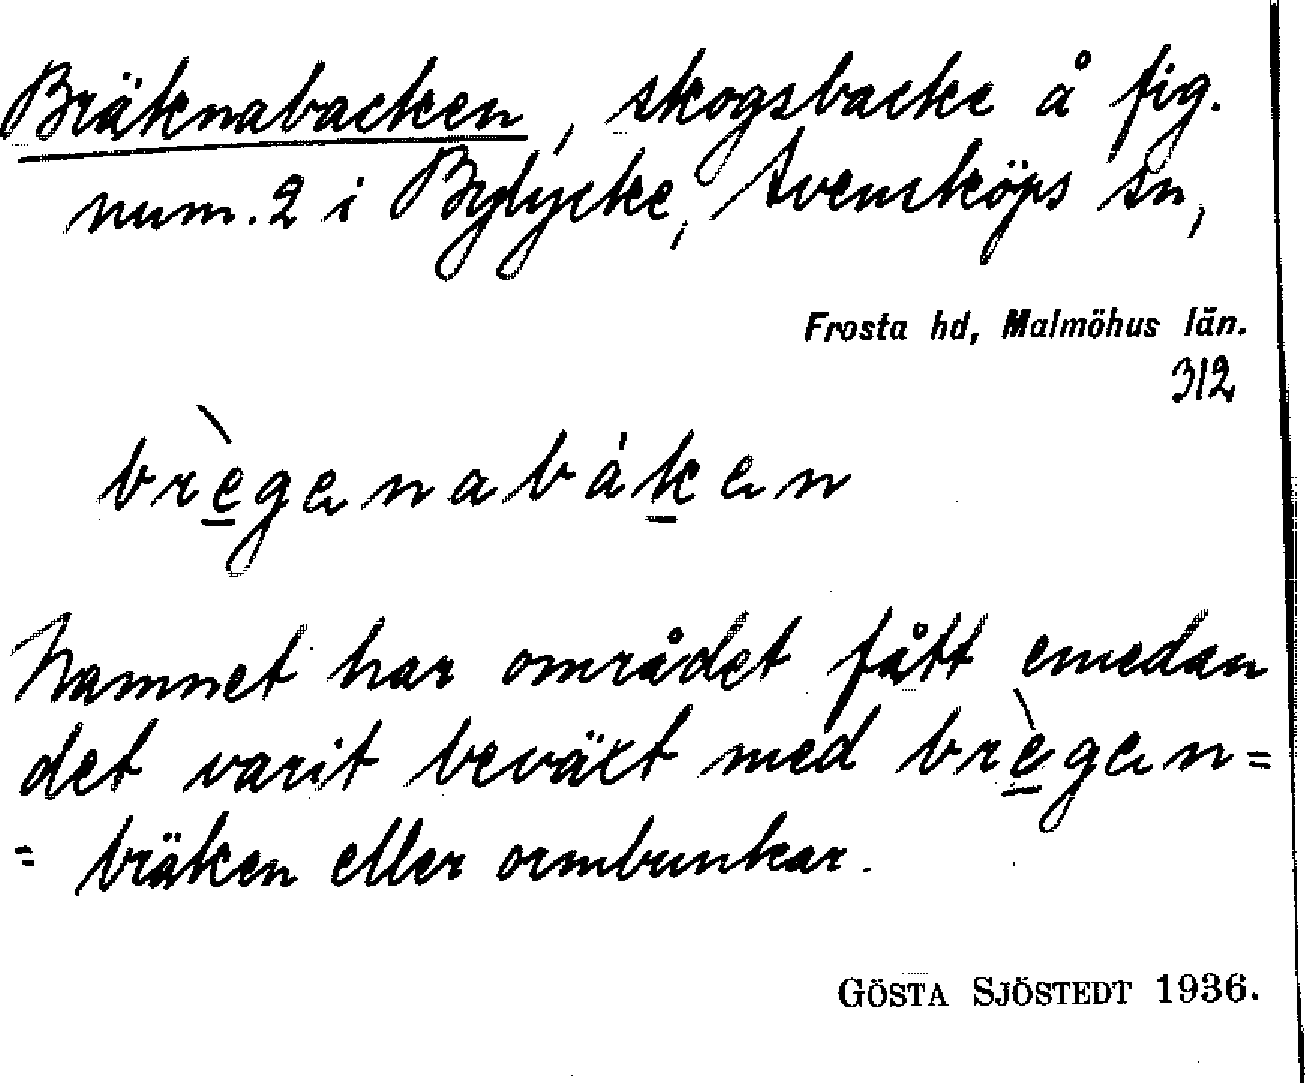 Bräknabacken, skogsbacke å fig.
num. 2 i Bylycke, Svensköps sn,
Frosta hd, Malmöhus län.
312
brègenabáken
Namnet har området fått emedan
det varit beväxt med brègen=
= bräken eller ormbunkar.
GÖSTA SJÖSTEDT 1936.